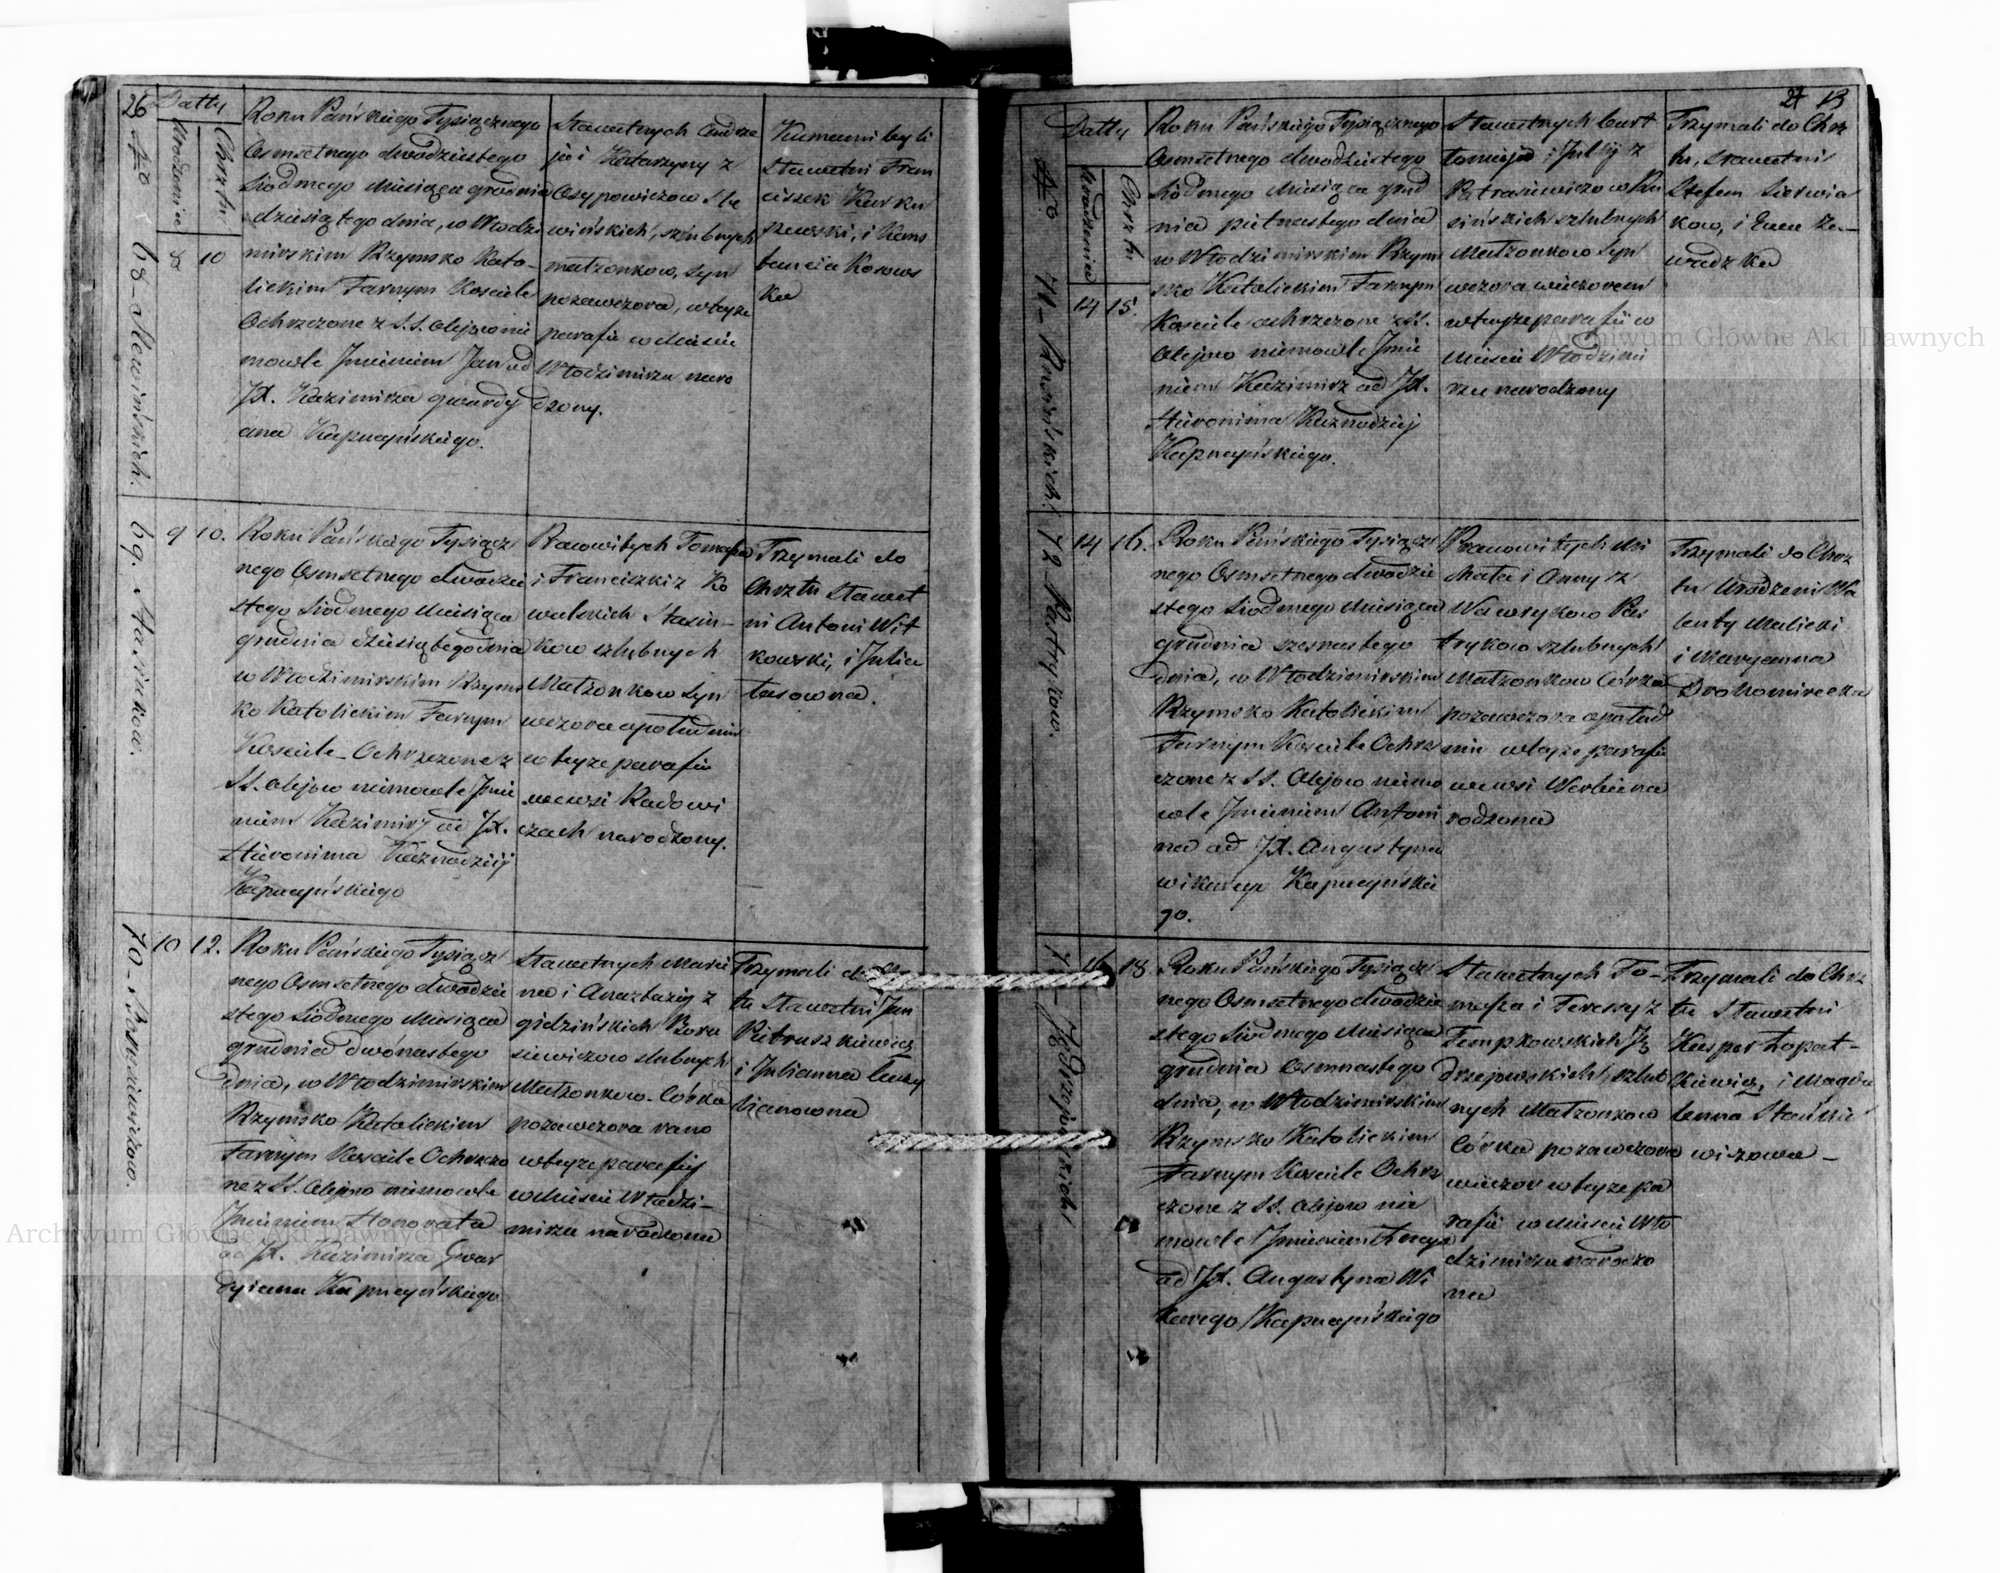 26
Datty
Nro
Urodzenie
Chrztu
68 - Slewińskich.
8
10
Roku Pańskiego Tysiącznego
Osmsetnego dwódziestego
Siódmego Miesiąca grudnia
dziesiątego dnia, w Włodzi
mirskim Rzymsko Kato-
lickim Farnym Kosciele
Ochrzczone z S.S. Olejow nie
mowle Jmieniem Jan od
JX. Kazimirza gwardy
ana Kapucyńskiego.
Stawetnych Andrze
ja i Katarzyny z
Osypowiczow Sle
wińskich, szlubnych
małzonkow, syn
pozawczora, w teyze
parafii w Miescie
Włodzimirzu naro
dzony.
Kumami byli
Stawetni Fran
ciszek Kurku
szewski, i Kons
tancia Kosows
ka
69. Stasiukow.
9
10.
Roku Pańskiego Tysiącz
nego Osmsetnego dwódzie
stego Siódmego Miesiąca
grudnia dziesiątego dnia
w Włodzimirskim Rzyms
ko Katolickim Farnym
Kosciele Ochrzczone z
SS. Olejow niemowle Jmie
niem Kazimirz od JX.
Hieronima Kaznodzieij
Kapucyńskiego
Pracowitych Tomasza
i Franciszki z Ko
walskich Stasiu-
kow szlubnych
Małzonkow Syn
wczora o południu
w teyze parafii
we wsi Radowi
czach narodzony.
Trzymali do
Chrztu Stawet
ni Antoni Wit
kowski, i Julia
tasowna.
70 - Borusiewiczow.
10
12.
Roku Pańskiego Tysiącz
nego Osmsetnego dwódzie
stego Siódmego Miesiąca
grudnia dwónastego
dnia, w Włodzimirskim
Rzymsko Katolickim
Farnym Kosciele Ochrzczo
ne z SS. Olejow niemowle
Jmieniem Honorata
od JX. Kazimirza Gwar
dyiana Kapucyńskiego
Stawetnych Marci
na i Anaztazij z
gidzińskich Boru
siewiczow slubnych
Małzonkow. Córka
pozawczora rano
w teyze parafij
w Miescie Włodzi-
mirzu narodzona
Trzymali do
tu Stawetni Jan
Pietruszkiewicz
i Julianna
13
Datty
Nro
Urodzenie
Chrztu
71 - Rusińskich.
14
15.
Roku Pańskiego Tysiącznego
Osmsetnego dwódziestego
Siódmego Miesiąca grud
nia pietnastego dnia
w Włodzimirskim Rzym
sko Katolickim Farnym
Kosciele ochrzczone z SS.
Olejow niemowle Jmie
niem Kazimirz od JX.
Hieronima Kaznodzieij
Kapucyńskiego.
Stawetnych Bart
łomieja i Julij z
Petrasiewiczow Ru
sińskich szlubnych
Małzonkow Syn
wczora wieczorem
w teyze parafii w
Miescie Włodzimi
rzu narodzony
Trzymali do Chrz
tu, Stawetni
Stefan Sierwia
kow, i Ewa Za-
wadzka
72 Patrykow.
14
16.
Roku Pańskiego Tysiącz
nego Osmsetnego dwódzie
stego Siódmego Miesiąca
grudnia szesnastego
dnia, w Włodzimirskim
Rzymsko Katolickim
Farnym Kosciele Ochrz
czone z SS. Olejow niemo
wle Jmieniem Antoni
na od JX. Augustyna
wikarego Kapucyńskie
go.
Pracowitych Mi
chała i Anny z
Wawrykow Pat
rykow szlubnych
Małzonkow Córka
pozawczora o połud
niu w teyze parafii
we wsi Werbie na
rodzona
Trzymali do Chrz
tu Urodzeni Wa
lenty Malicki
i Maryanna
Drohomirecka
Jędrzejowskich
16
18
Roku Pańskiego Tysiącz
nego Osmsetnego dwódzie
stego Siódmego Miesiąca
grudnia Osmnastego
dnia, w Włodzimirskim
Rzymsko Katolickim
Farnym Kosciele Ochrz
czone z SS. Olejow nie
mowle Jmieniem
od JX. Augustyna Wi
karego Kapucyńskiego
Stawetnych To-
masza i Teressy z
Tempkowskich Ję
drzejowskich, szlub
nych Małzonkow
Córka pozawczora
wieczor w teyze pa
rafii w Miescie Wło
dzimirzu narodzo
na
Trzymali do Chrz
tu Stawetni
Kasper Łopat-
kiewicz, i Magda
lenna Stańkie
wiczowa -
Archiwum Główne Akt Dawnych
Archiwum Główne Akt Dawnych